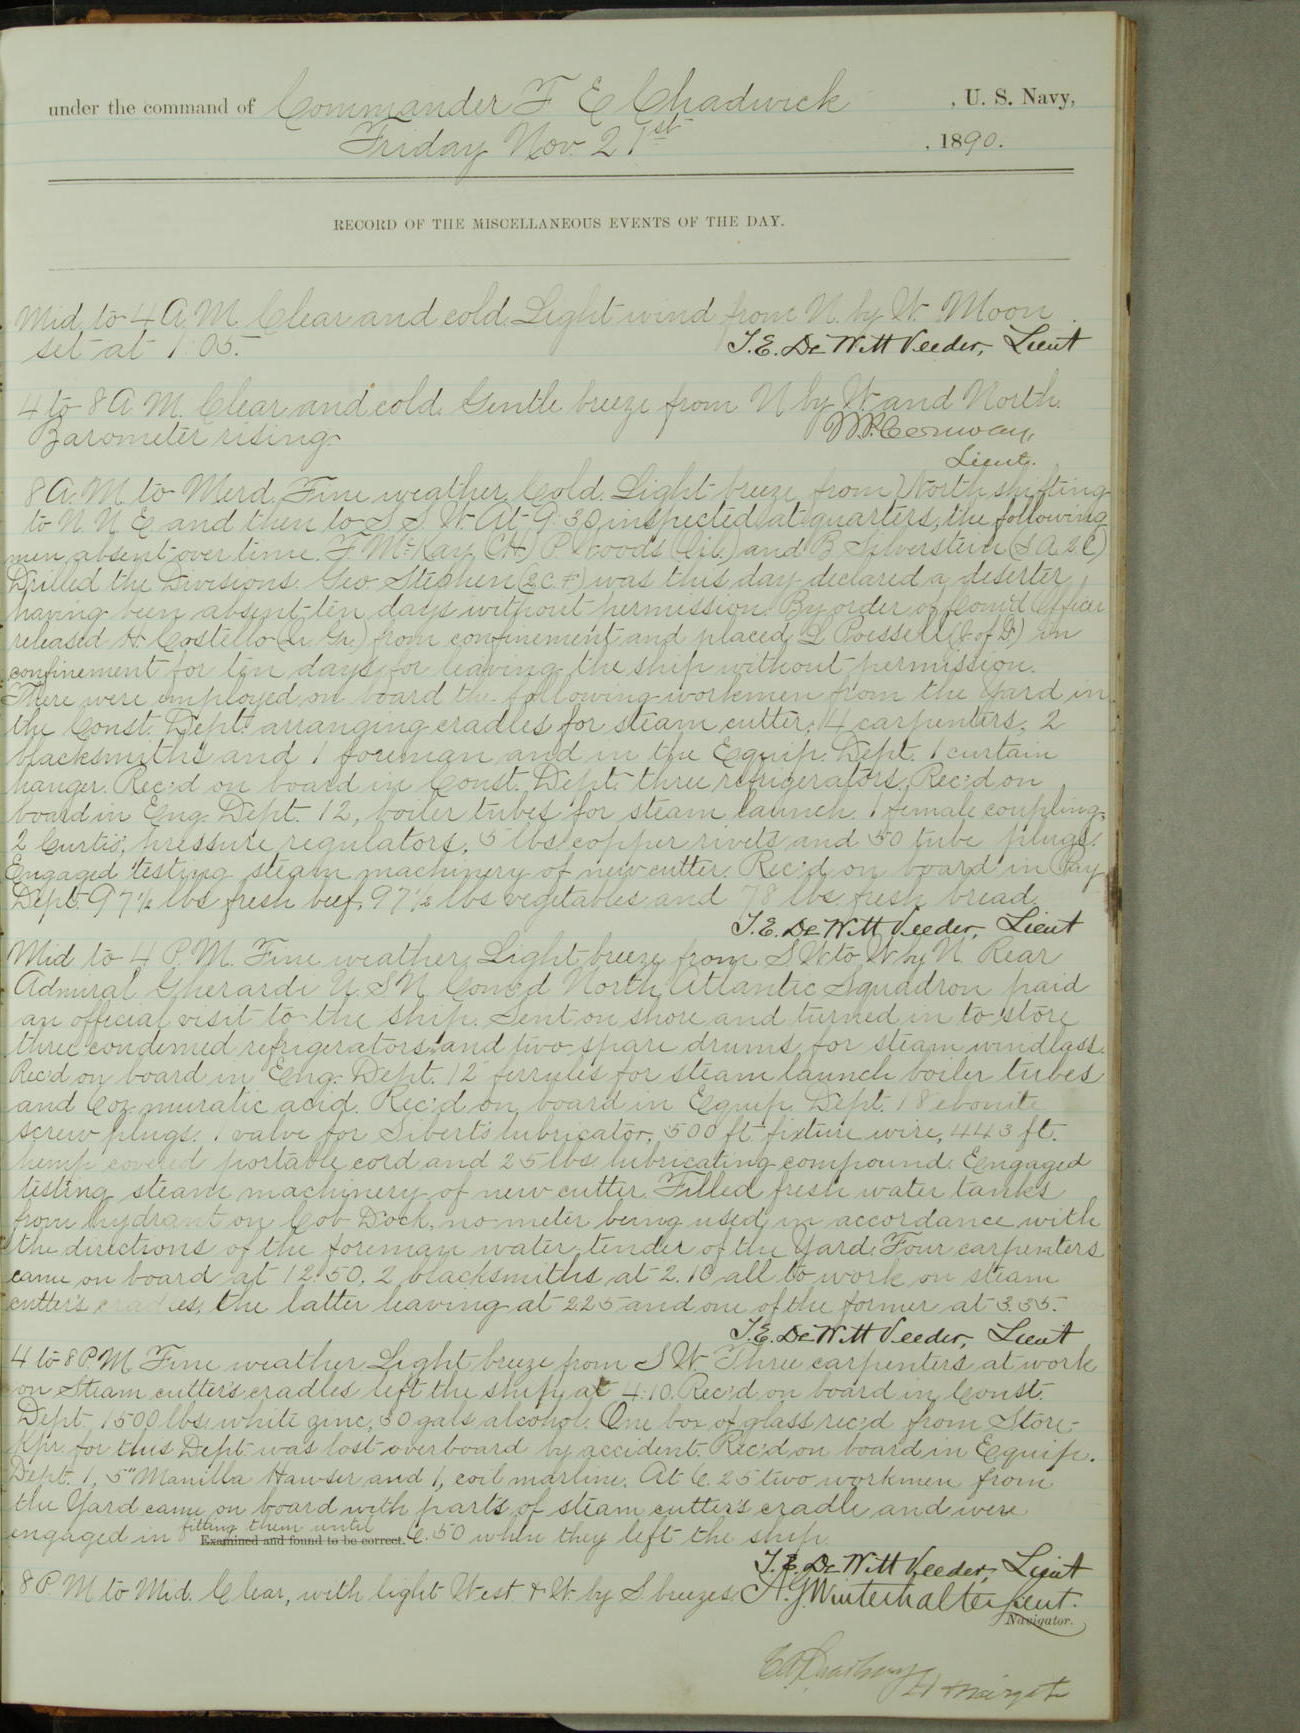 under the command of Commander F E Chadwick , U. S. Navy,
Friday Nov. 21st , 1890.
RECORD OF THE MISCELLANEOUS EVENTS OF THE DAY.
Mid. to 4 A. M. Clear and cold. Light wind from N. by W. Moon
set at 1:05.
T. E. DeWitt Veeder, Lieut
4 to 8 A. M. Clear and cold. Gentle breeze from N by W. and North.
Barometer rising.
W.P. Conway,
Lieut.
8 A. M. to Merd. Fine weather. Cold. Light breeze from North shifting
to N N E and then to S. S. W. At 9:30 inspected at quarters, the following
men absent over time. F McKay (CH) P. Woods (Oil.) and B Silverstein (S A 2 C)
Drilled the Divisions. Geo. Stephen (2 C. F.) was this day declared a deserter,
having been absent ten days without permission. By order of Com'd'g Officer
released H Costello from confinement and placed L Poessell in
confinement for ten days for leaving the ship without permission.
There were employed on board the following workmen from the Yard in
the Const. Dept. arranging cradles for steam cutter, 4 carpenters, 2
blacksmiths and 1 foreman and in the Equip. Dept. 1 curtain
hanger. Rec'd on board in Const. Dept. three refrigerators. Rec'd on
board in Eng. Dept. 12, boiler tubes for steam launch. 1 female coupling,
2 Curtis; pressure regulators. 5 lbs copper rivets and 50 tube plugs.
Engaged testing steam machinery of new cutter. Rec'd on board in Pay
Dept. 97 1/2 lbs fresh beef, 97 1/2 lbs vegetables and 78 lbs fresh bread.
T. E. DeWitt Veeder, Lieut
Mid to 4 P. M. Fine weather, Light breeze from S W to W by N Rear
Admiral Gherardi U. S N Com'd North Atlantic Squadron paid
an official visit to the ship. Sent on shore and turned in to store
three condemned refrigerators and two spare drums for steam windlass.
Rec'd on board in Eng. Dept. 12 ferrules for steam launch boiler tubes
and 6 oz muratic acid. Rec'd on board in Equip. Dept. 18 ebonite
screw plugs. 1 valve for Siberts lubricator, 500 ft fixture wire, 443 ft.
hemp covered portable cord and 25 lbs lubricating compound. Engaged
testing steam machinery of new cutter. Filled fresh water tanks
from hydrant on Cob Dock, no meter being used in accordance with
the directions of the foreman water tender of the Yard. Four carpenters
came on board at 12:50. 2 blacksmiths at 2.10 all to work on steam
cutter's cradles, the latter leaving at 2.25 and one of the former at 3.35.
T. E. DeWitt Veeder, Lieut
4 to 8 P. M. Fine weather Light breeze from S W. Three carpenters at work
on Steam cutter's cradles left the ship at 4.10. Rec'd on board in Const.
Dept. 1500 lbs white zinc, 30 gals alcohol. One box of glass rec'd from Store-
kpr. for this Dept. was lost overboard by accident. Rec'd on board in Equip.
Dept. 1, 5" Manilla Hawser and 1, coil marline. At 6.25 two workmen from
the Yard came on board with parts of steam cutter's cradle and were
engaged in fitting them until 6.50 when they left the ship.
Examined and found to be correct.
T. E. DeWitt Veeder, Lieut
8 P. M to Mid. Clear, with light West & W. by S. breezes. A. G. Winterhalter Lieut.
Navigator.